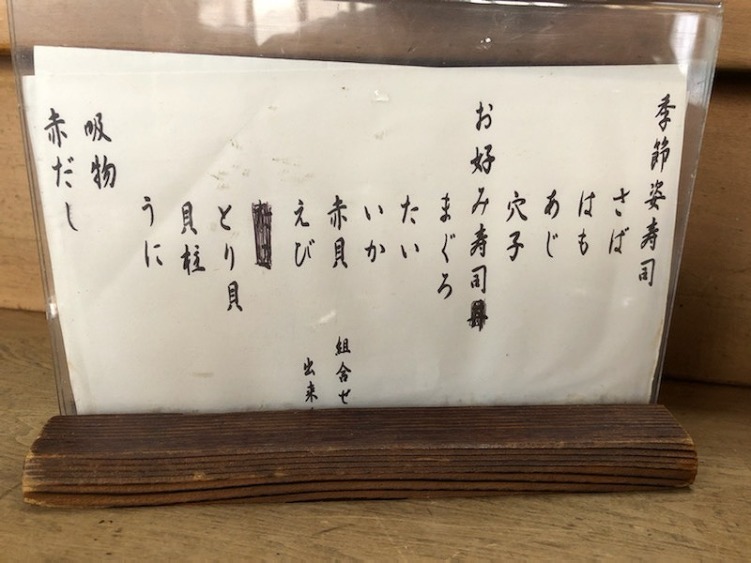 季節姿寿司
さば
はも
あじ
穴子
お好み寿司
まぐろ
たい
いか
赤貝
えび
とり貝
貝柱
うに
組合せ
出来
吸物
赤だし